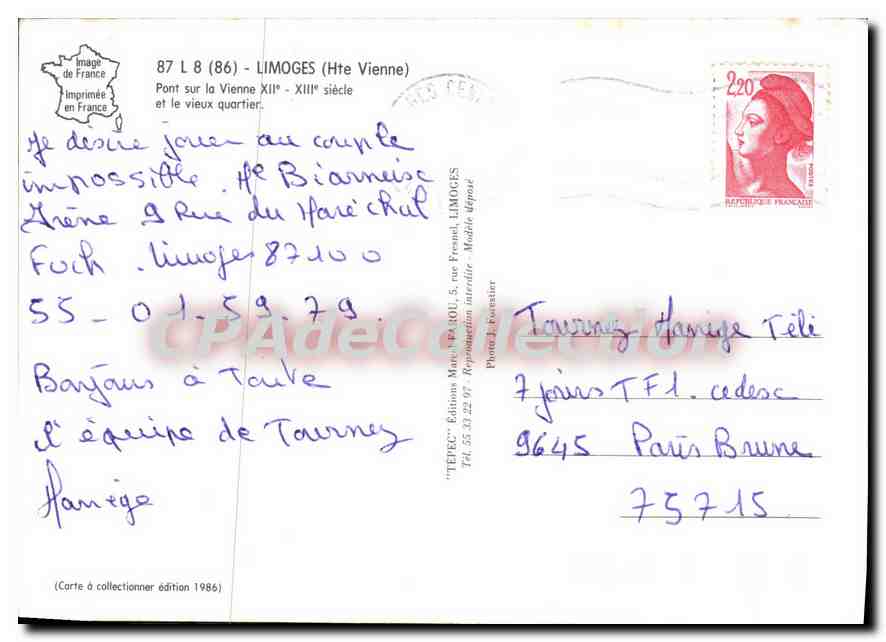 Image
de France
Imprimée
en France
87 L 8 (86) - LIMOGES (Hte Vienne)
Pont sur la Vienne XIIe - XIIIe siècle
et le vieux quartier.
Je désire jouer au couple
impossible. Me Biarneisc
Irène 9 Rue du Maréchal
Foch. limoges 87100
55-01-59.79.
Bonjours à Toute
l'équipe de Tournez
Manège
(Carte à collectionner édition 1986)
"TÉPEC" Éditions Marcel FAROU, 5, rue Fresnel, LIMOGES
Tél. 55 33 22 97 - Reproduction interdite - Modèle déposé
Photo J. Forestier
2,20
POSTES
REPUBLIQUE FRANÇAISE
Tournez Manège Téli
7 jours TF1. cedesc
9645 Paris Brune
75715
CPAdeCollection